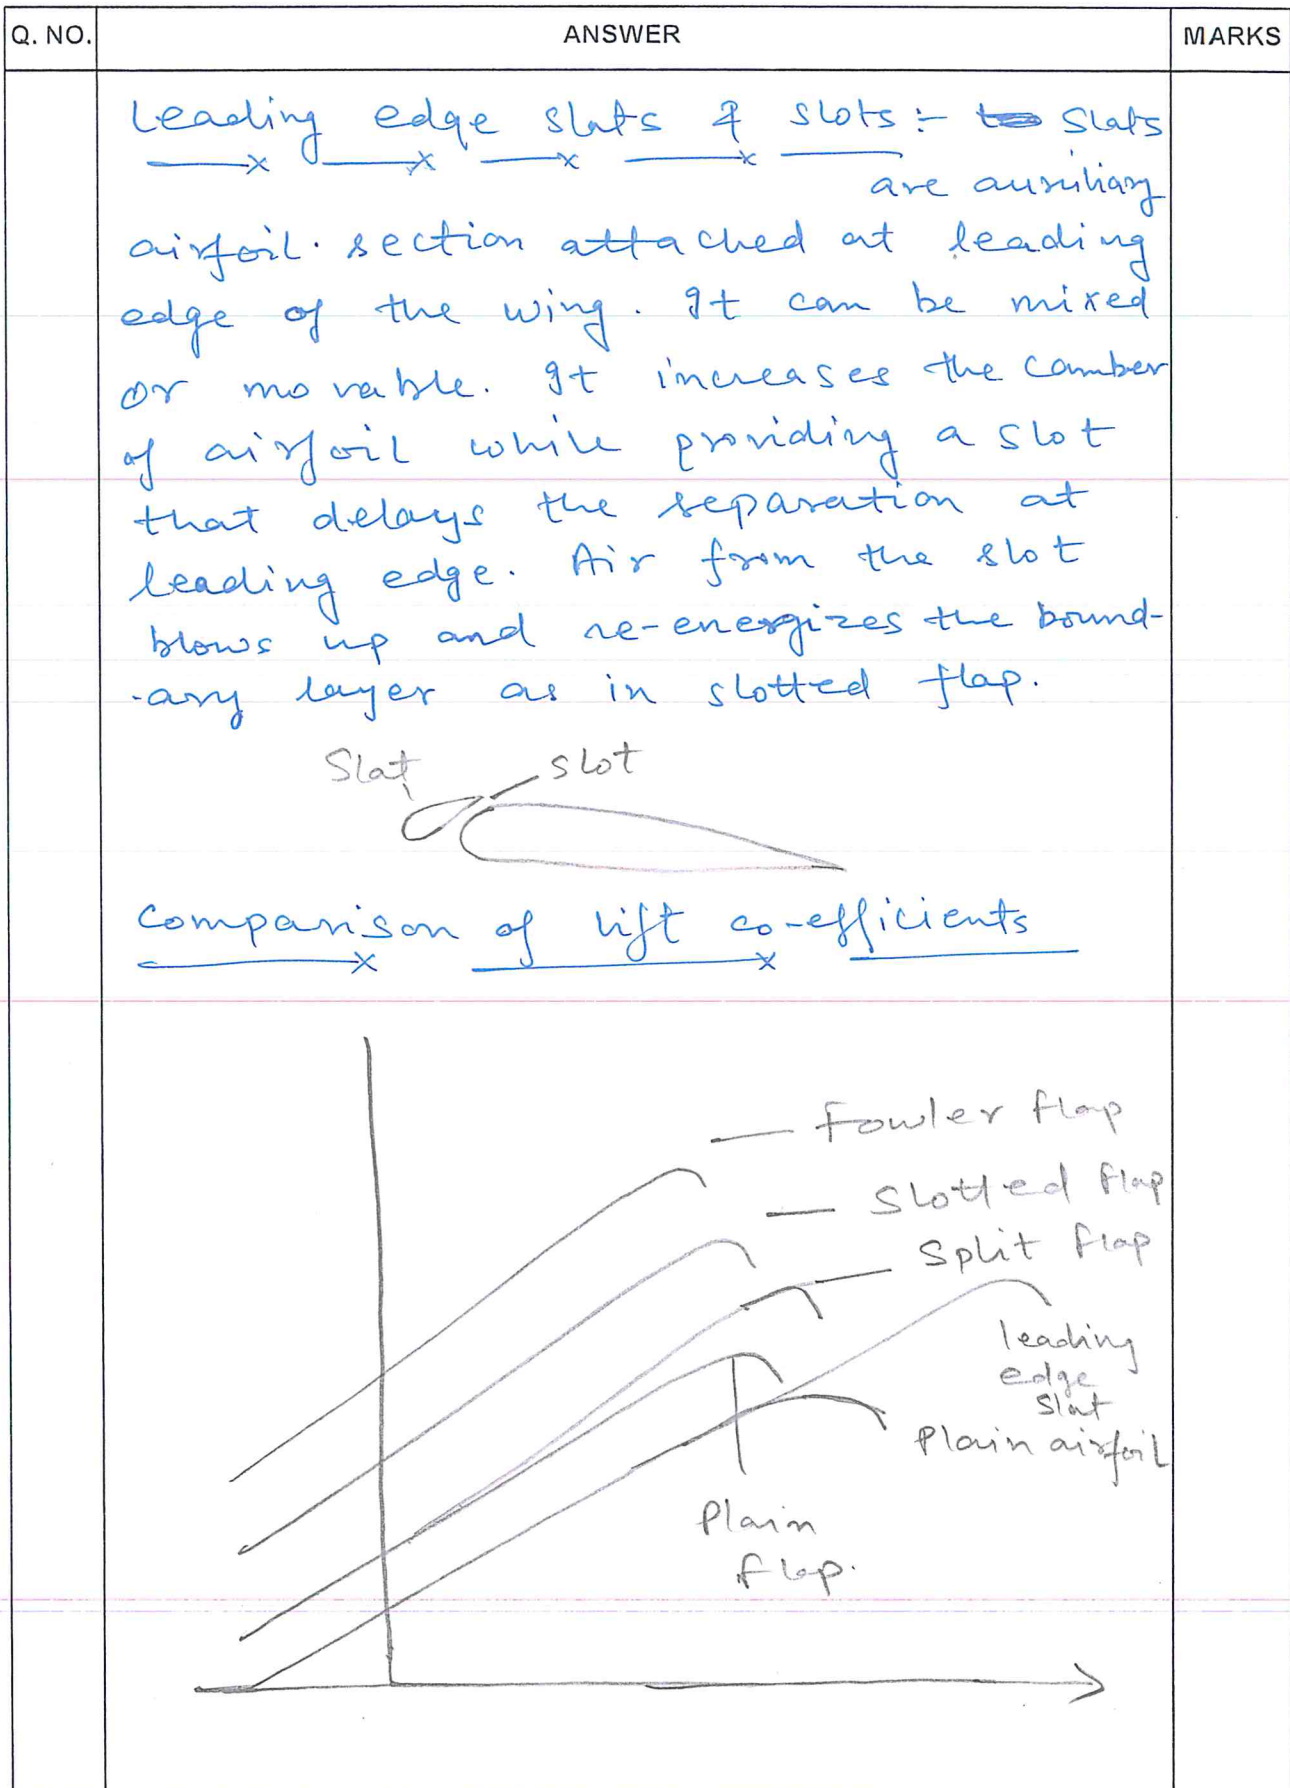 Q. NO. ANSWER MARKS
Leading edge slats & slots :- Slats
are auxiliary
airfoil. section attached at leading
edge of the wing. It can be mixed
or movable. It increases the camber
of airfoil while providing a slot
that delays the separation at
leading edge. Air from the slot
blows up and re-energizes the bound-
-ary layer as in slotted flap.
Slat slot
Comparison of lift co-efficients
Fowler flap
Slotted flap
Split flap
leading
edge
slat
Plain airfoil
Plain
flap.